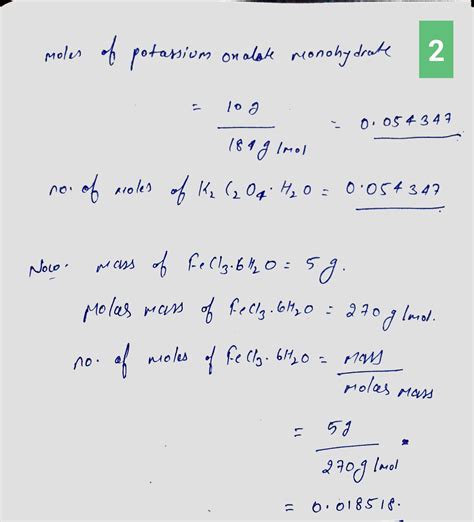 moles of potassium oxalate monohydrate 2
= 10 g / 184 g/mol = 0.054347
no. of moles of K2C2O4.H2O = 0.054347
Now. mass of FeCl3.6H2O = 5g.
Molar mass of FeCl3.6H2O = 270 g/mol.
no. of moles of FeCl3.6H2O = Mass / Molar Mass
= 5g / 270g/mol
= 0.018518.